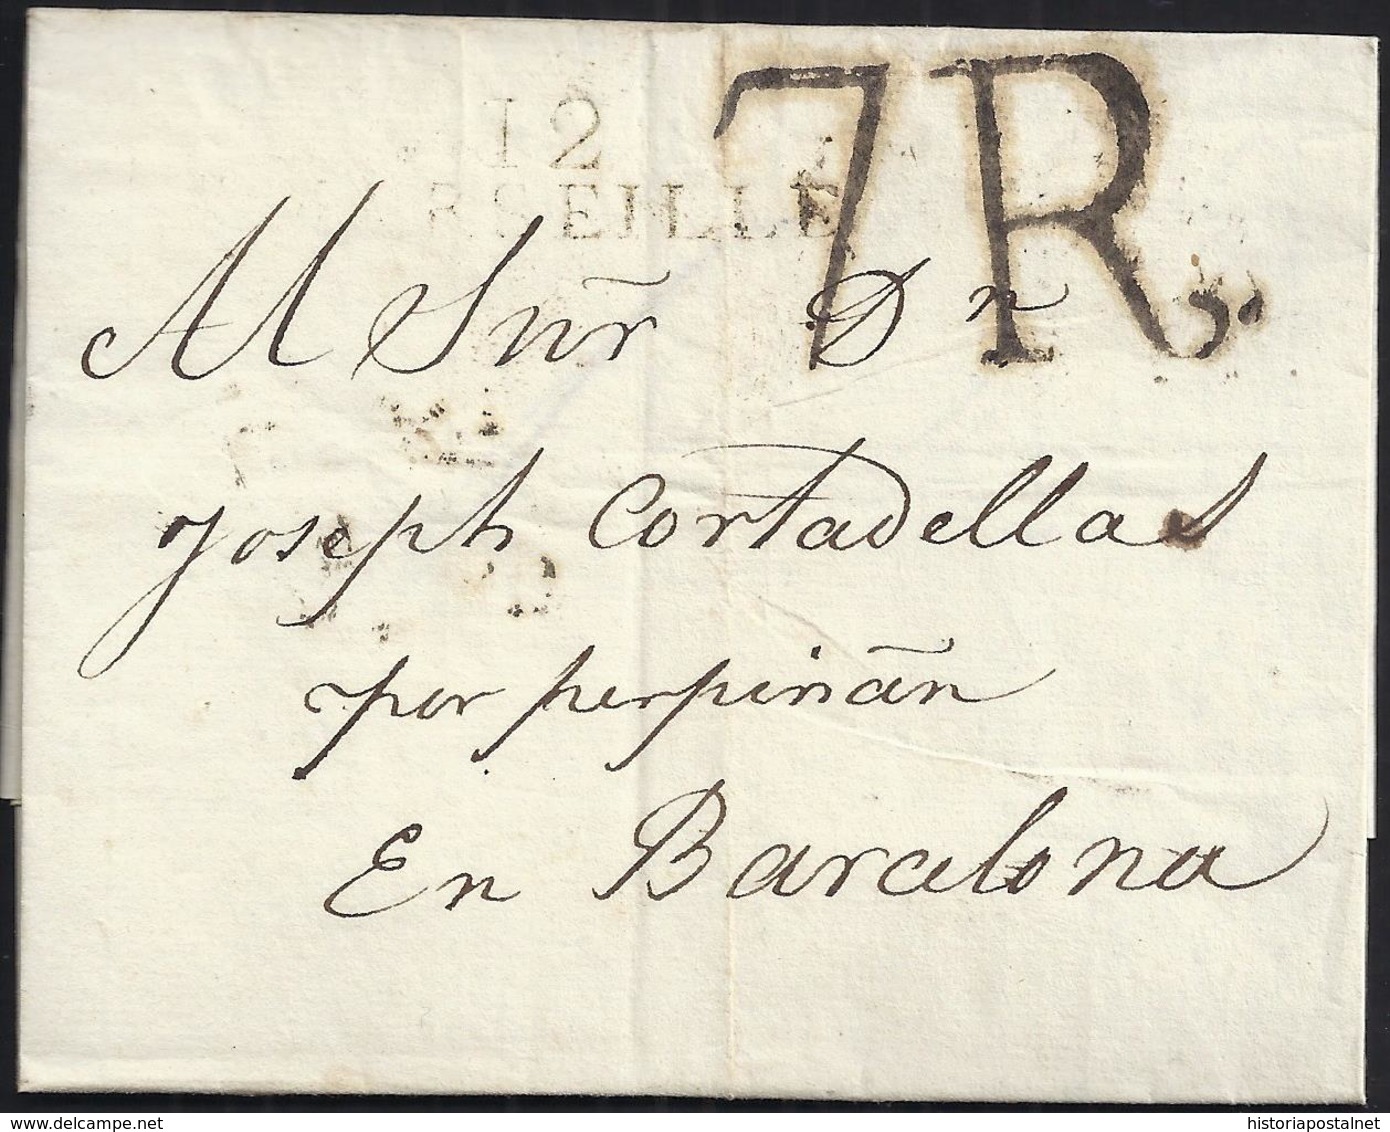 12
RSEILLE
7R.
Al Snr̃ Dn
Joseph Cortadellas
por perpiñán
En Barcelona
www.delcampe.net
historiapostalnet